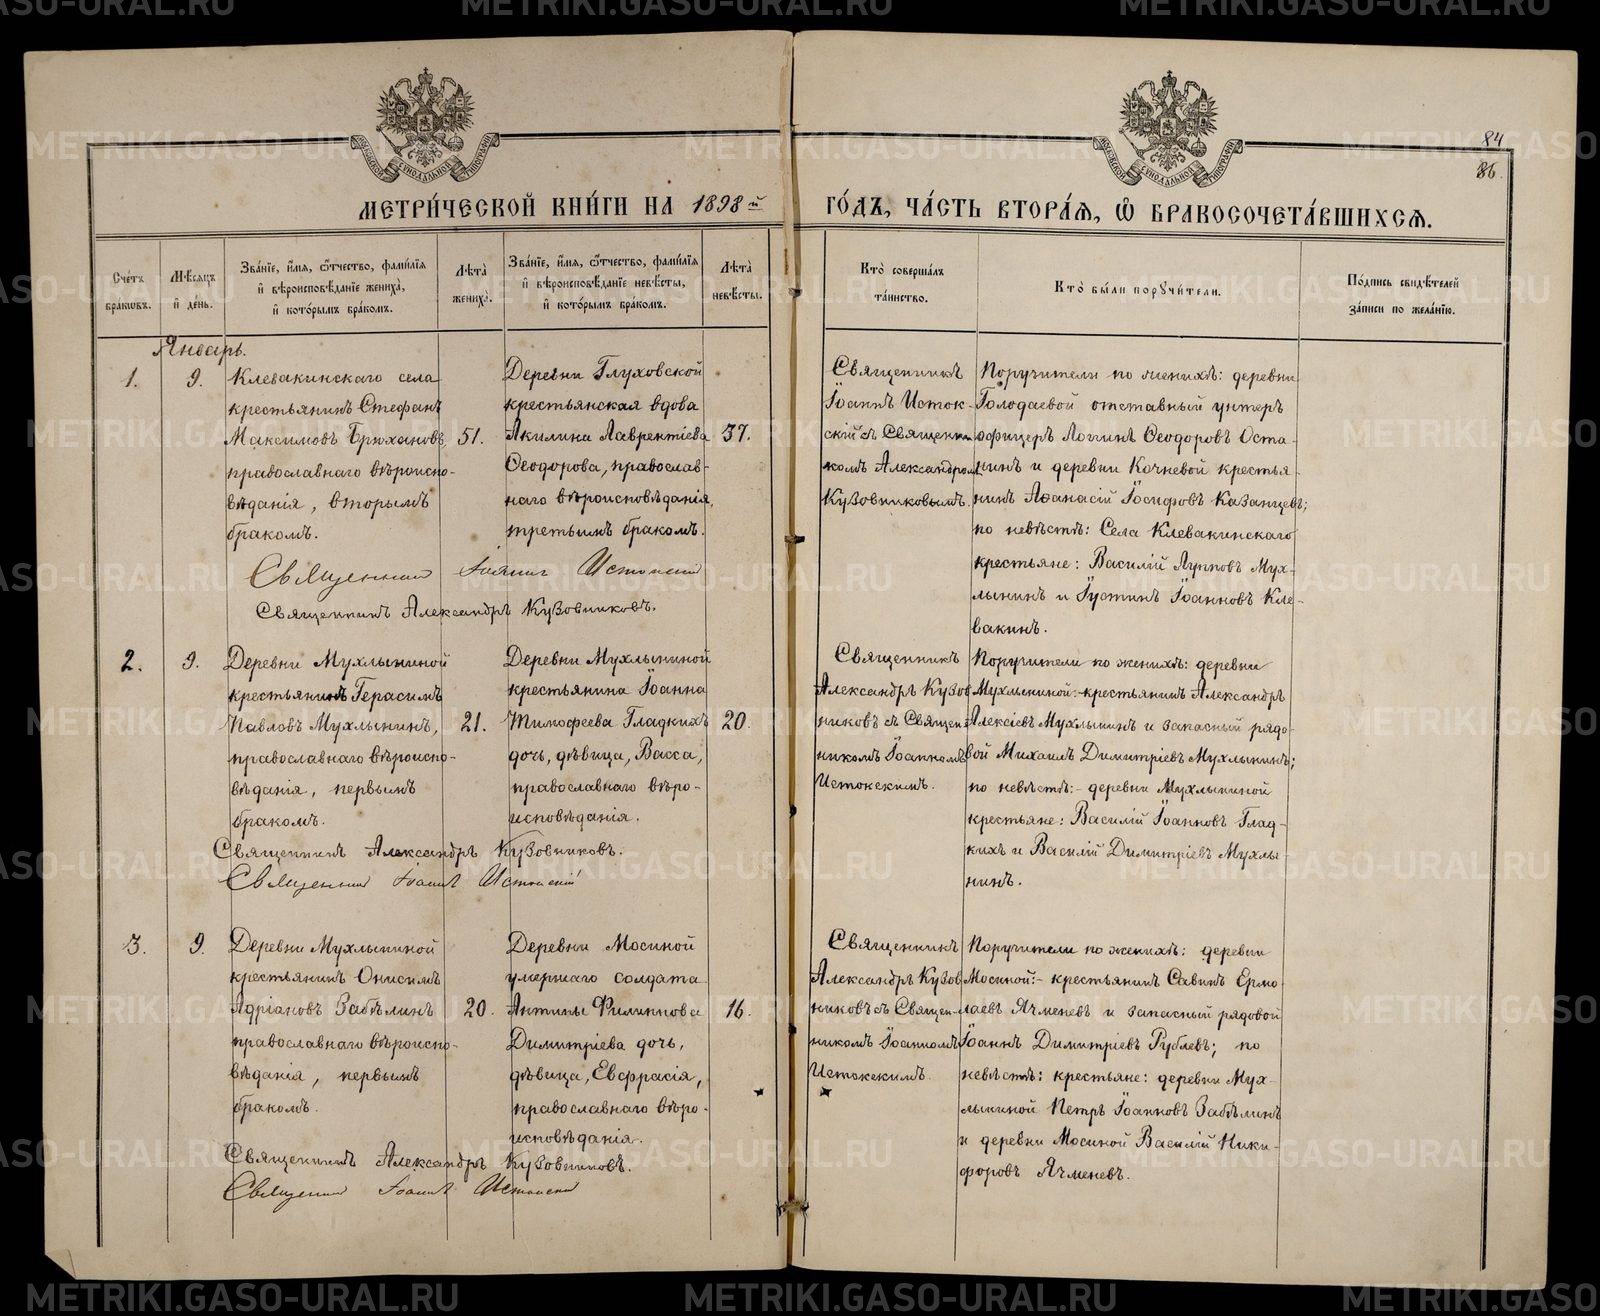 84
86.
МЕТРИ́ЧЕСКОЙ КНИ́ГИ НА 1898 й ГО́ДЪ, ЧА́СТЬ ВТОРА́Ѧ, Ѡ҆ БРАКОСОЧЕТА́ВШИХСѦ.
Сче́тъ бра́ковъ.
Мѣ́сяцъ и҆ де́нь.
Зва́нїе, и҆́мя, ѻ҆́тчество, фами́лїя и҆ вѣроисповѣ́данїе жениха̀, и҆ кото́рымъ бра́комъ.
Лѣ́та жениха̀.
Зва́нїе, и҆́мя, ѻ҆́тчество, фами́лїя и҆ вѣроисповѣ́данїе невѣ́сты, и҆ кото́рымъ бра́комъ.
Лѣ́та невѣ́сты.
Кто̀ соверша́лъ та́инство.
Кто̀ бы́ли поручи́тели.
По́дпись свидѣ́телей за́писи по жела́нїю.
Январь.
1.
9.
Клевакинскаго села
крестьянинъ Стефанъ
Максимовъ Брюхановъ,
православнаго вѣроиспо-
вѣданія, вторымъ
бракомъ.
51.
Деревни Глуховской
крестьянская вдова
Акилина Лаврентіева
Ѳеодорова, православ-
наго вѣроисповѣданія,
третьимъ бракомъ.
37.
Священникъ
Іоаннъ Исток-
скій съ Священни-
комъ Александромъ
Кузовниковымъ.
Поручители по женихѣ: деревни
Голодаевой отставный унтеръ
офицеръ Логгинъ Ѳеодоровъ Оста-
нинъ и деревни Кочневой крестья-
нинъ Аѳанасій Іосифовъ Казанцевъ;
по невѣстѣ: Села Клевакинскаго
крестьяне: Василій Лупповъ Мух-
лынинъ и Іустинъ Іоанновъ Кле-
вакинъ.
Священникъ Іоаннъ Истокскій
Священникъ Александръ Кузовниковъ.
2.
9.
Деревни Мухлыниной
крестьянинъ Герасимъ
Павловъ Мухлынинъ,
православнаго вѣроиспо-
вѣданія, первымъ
бракомъ.
21.
Деревни Мухлыниной
крестьянина Іоанна
Тимофеева Гладкихъ
дочь, дѣвица, Васса,
православнаго вѣро-
исповѣданія.
20.
Священникъ
Александръ Кузов
никовъ съ Священ-
никомъ Іоанномъ
Истокскимъ.
Поручители по женихѣ: деревни
Мухлыниной:- крестьянинъ Александръ
Алексіевъ Мухлынинъ и запасный рядо-
вой Михаилъ Димитріевъ Мухлынинъ;
по невѣстѣ:- деревни Мухлыниной
крестьяне: Василій Іоанновъ Глад-
кихъ и Василій Димитріевъ Мухлы-
нинъ.
Священникъ Александръ Кузовниковъ.
Священникъ Іоаннъ Истокскій
3.
9.
Деревни Мухлыниной
крестьянинъ Онисимъ
Адріановъ Забѣлинъ
православнаго вѣроиспо-
вѣданія, первымъ
бракомъ.
20.
Деревни Мосиной
умершаго солдата
Антипы Филиппова
Димитріева дочь,
дѣвица, Евфрасія,
православнаго вѣро-
исповѣданія.
16.
Священникъ
Александръ Кузов
никовъ съ Священ-
никомъ Іоанномъ
Истокскимъ.
Поручители по женихѣ: деревни
Мосиной:- крестьянинъ Савинъ Ермо-
лаевъ Ячменевъ и запасный рядовой
Іоаннъ Димитріевъ Рублевъ; по
невѣстѣ: крестьяне: деревни Мух-
лыниной Петръ Іоанновъ Забѣлинъ
и деревни Мосиной Василій Ники-
форовъ Ячменевъ.
Священникъ Александръ Кузовниковъ.
Священникъ Іоаннъ Истокскій
METRIKI.GASO-URAL.RU